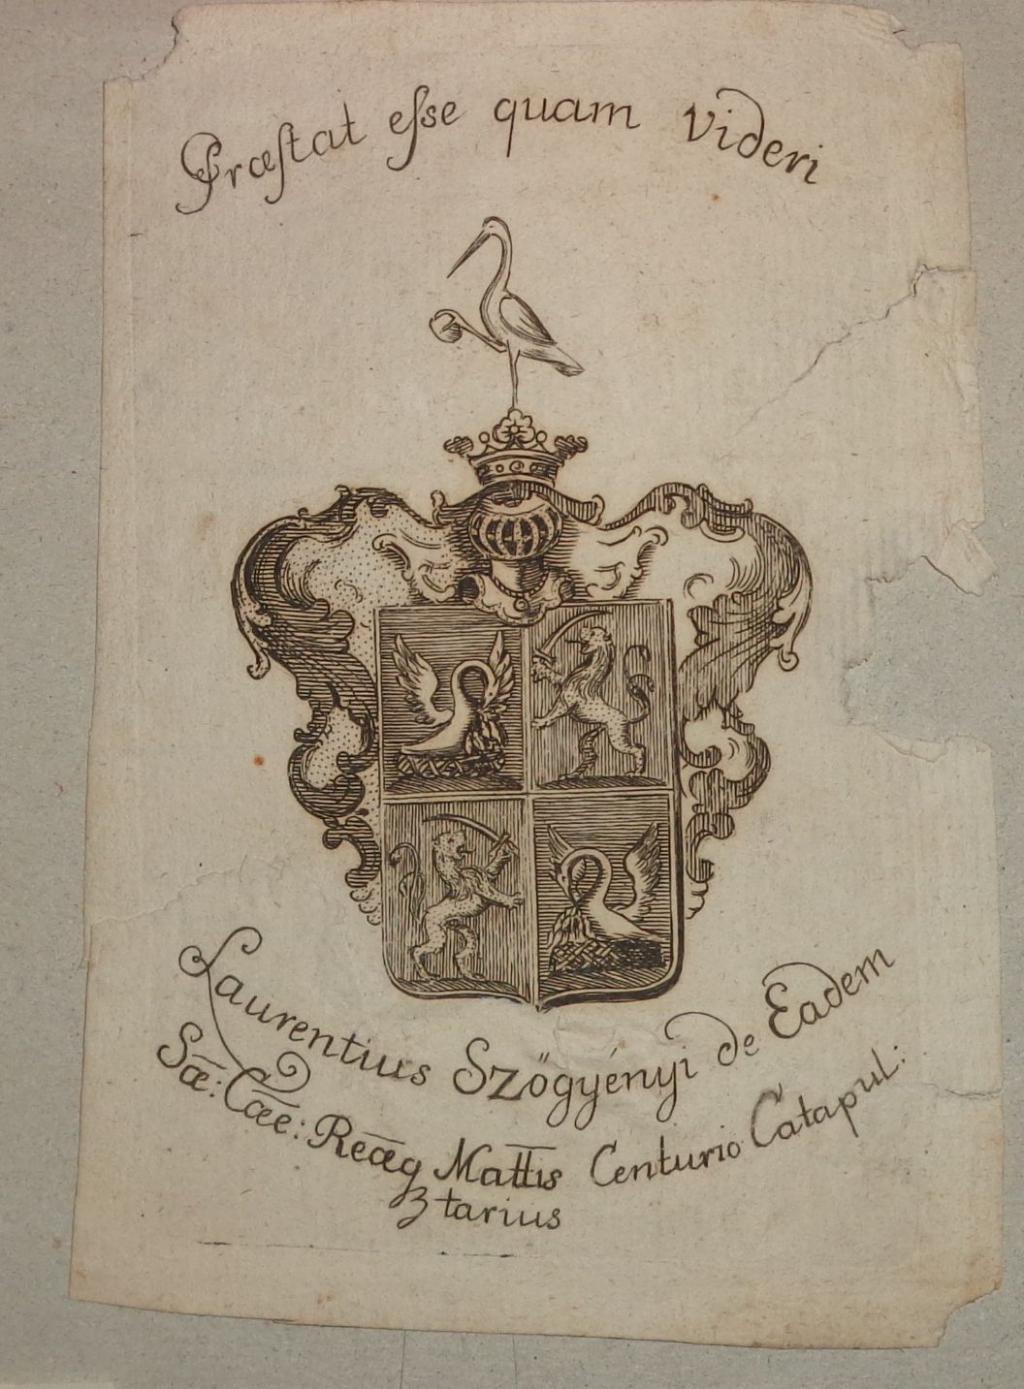 Præſtat eſse quam Videri
Laurentius Szögyényi de Eadem
Sæ: Cæe: Reæq Mattis Centurio Catapul:
tarius